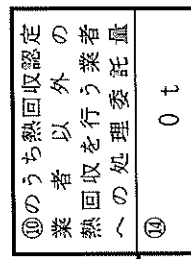 ⑩のうち熱回収認定
業者以外の
熱回収を行う業者
への処理委託量
⑭
0 t